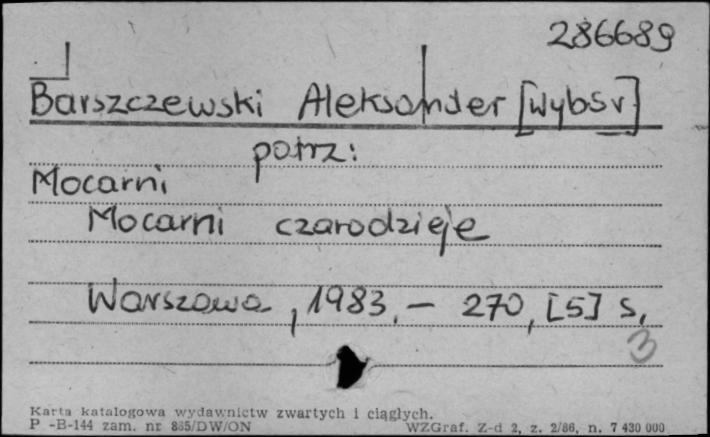 286689
Barszczewski Aleksander [Wybór]
patrz:
Mocarni
Mocarni czarodzieje
Warszawa, 1983. - 270, [5] s.
3
Karta katalogowa wydawnictw zwartych i ciągłych.
P -B-144 zam. nr 885/DW/ON WZGraf. Z-d 2, z. 2/86, n. 7 430 000